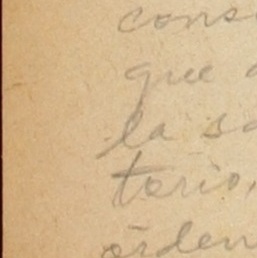 cons
que a
la sa
torio,
órden